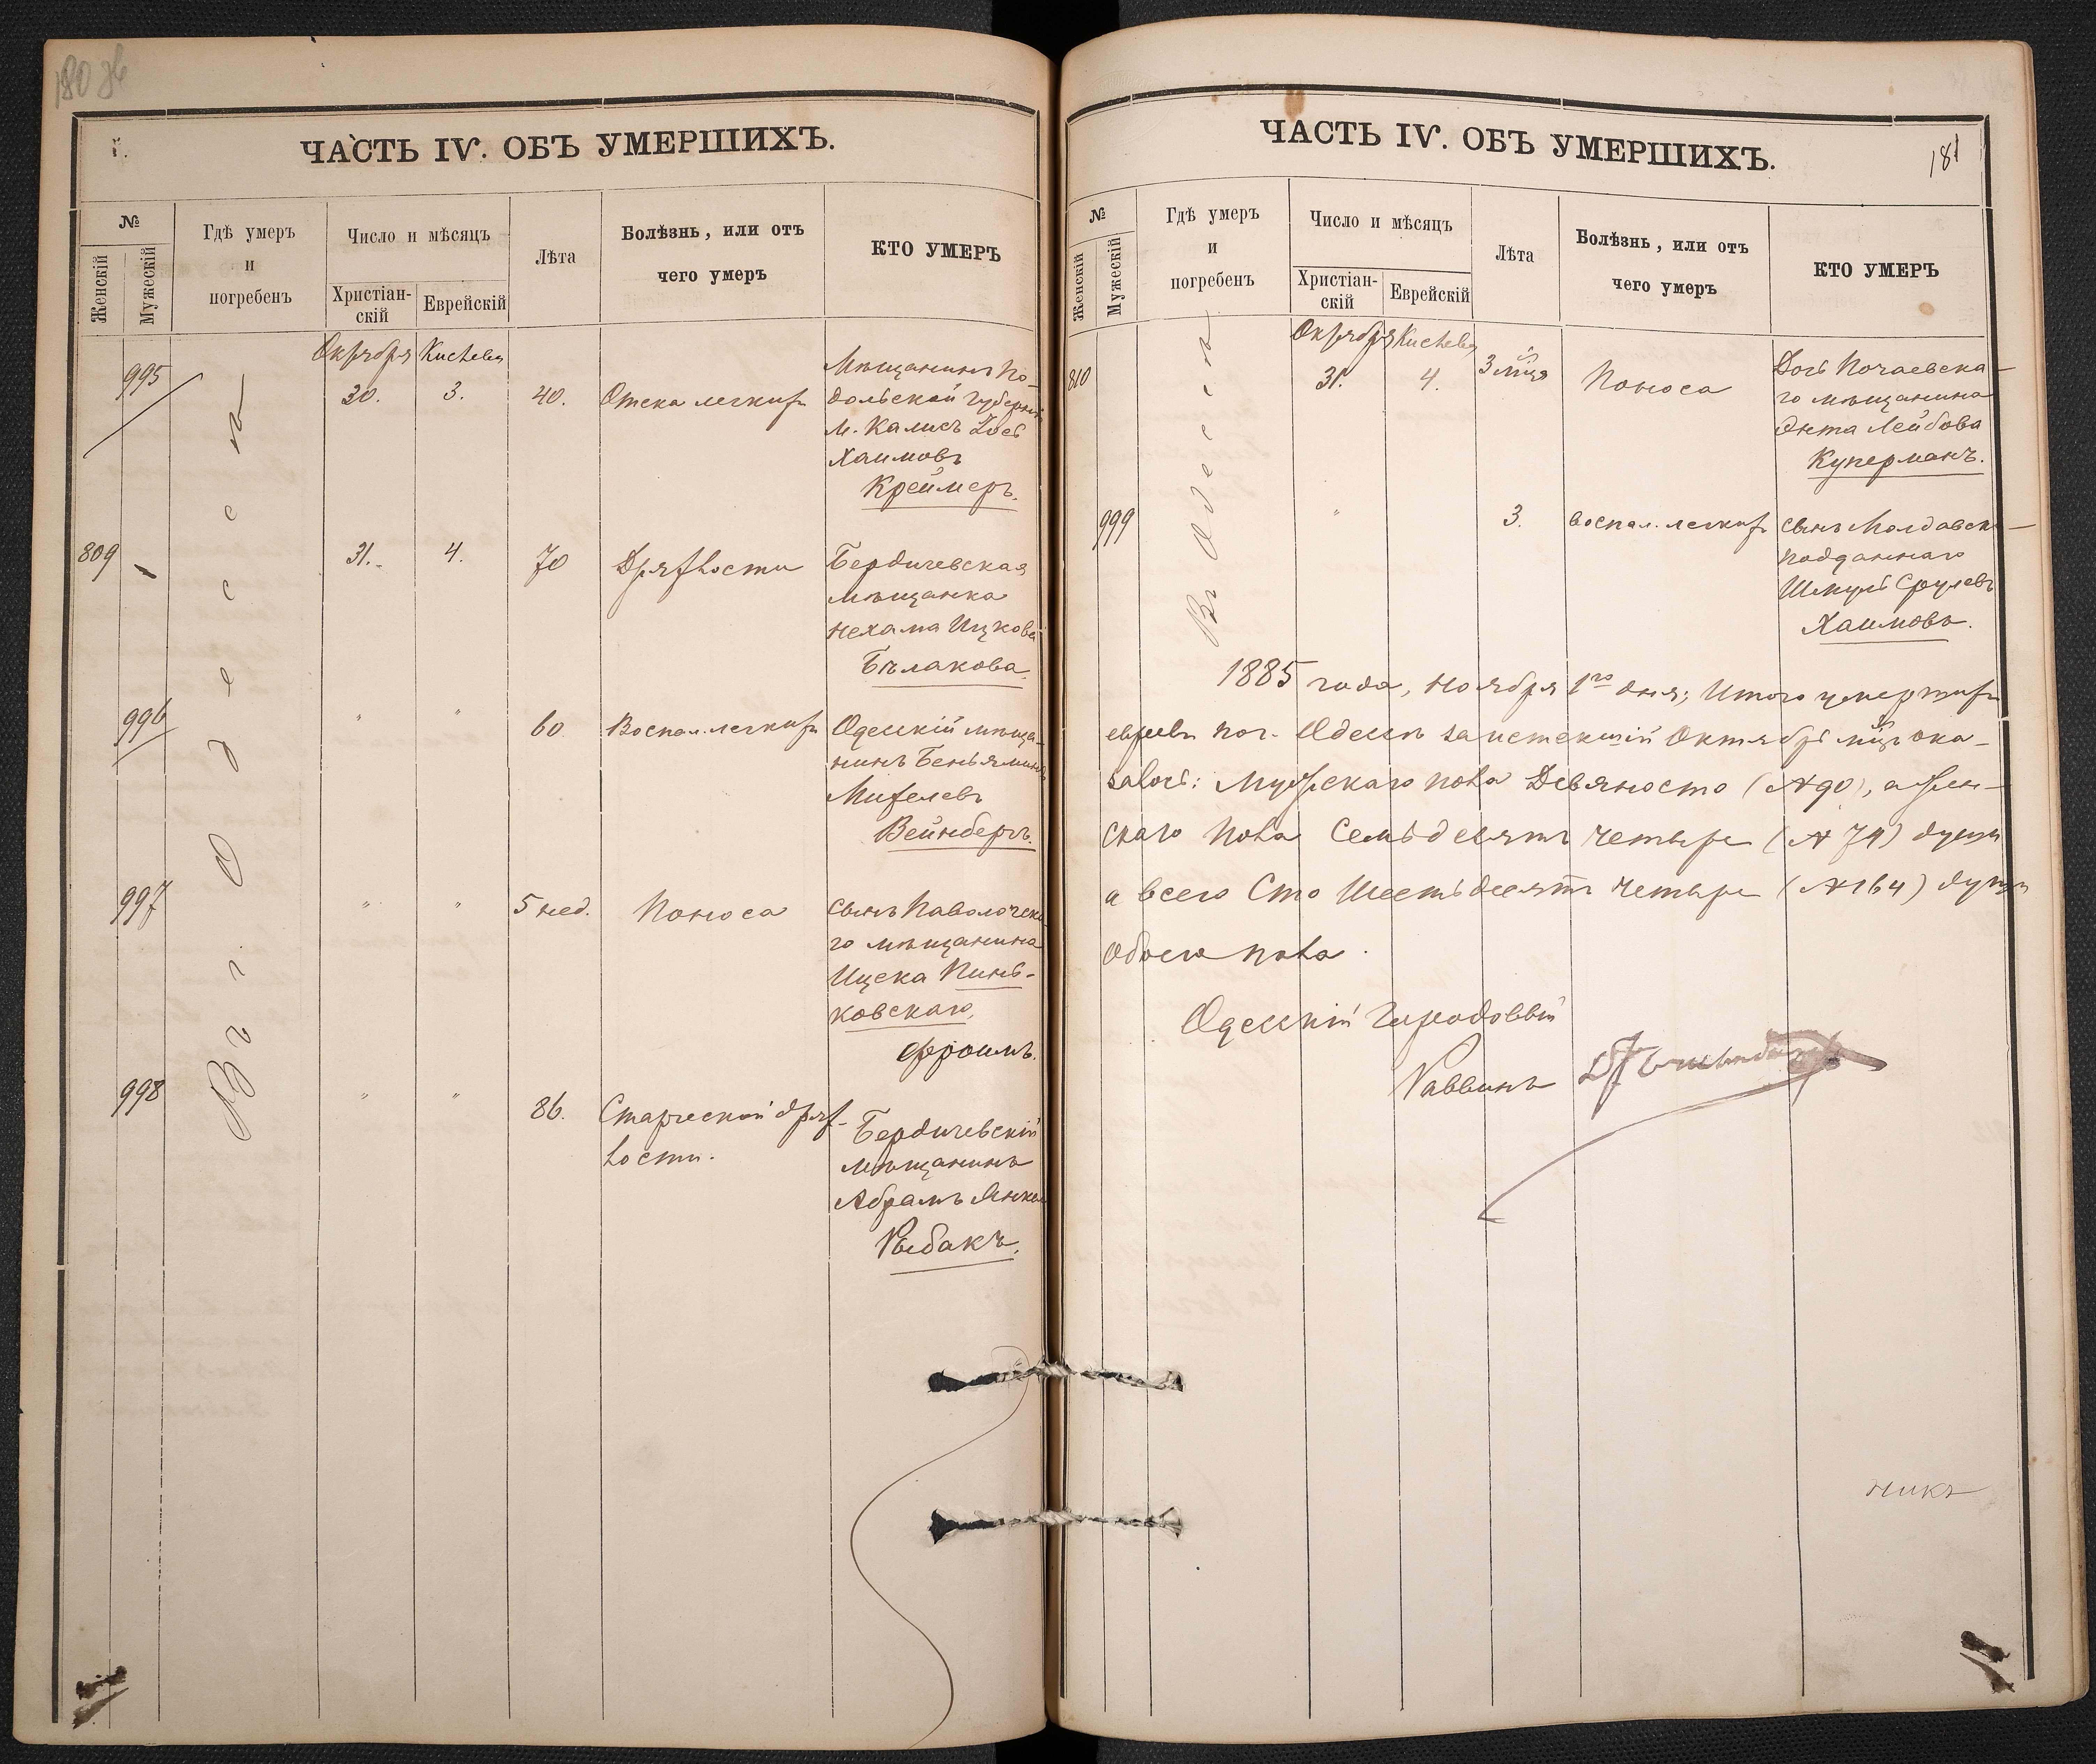 180 об
ЧАСТЬ IV. ОБЪ УМЕРШИХЪ.
№
Женскій
Мужескій
Гдѣ умеръ
и
погребенъ
Число и мѣсяцъ
Христіан-
скій
Еврейскій
Лѣта
Болѣзнь, или отъ
чего умеръ
КТО УМЕРЪ
Въ г. Одессѣ
Октября Кислева
995
30.
3.
40.
Отека легкихъ
Мѣщанинъ По-
дольской губерніи
м. Калюсъ
Хаимовъ
Креймеръ.
809
31.
4.
70
Дряхлости
Бердичевская
мѣщанка
Нехама Ицкова
Бѣлакова.
996
"
"
60
Воспал. легкихъ
Одесскій мѣща-
нинъ Беньяминъ
Михелевъ
Вейнбергъ.
997
"
"
5 нед.
Поноса
Сынъ Паволочска
го мѣщанина
Ицека Пинь-
ковскаго,
Фроимъ.
998
"
"
86.
Старческой дрях-
лости.
Бердичевскій
мѣщанинъ
Абрамъ Янкел
Рыбакъ.
ЧАСТЬ IV. ОБЪ УМЕРШИХЪ.
181
№
Женскій
Мужескій
Гдѣ умеръ
и
погребенъ
Число и мѣсяцъ
Христіан-
скій
Еврейскій
Лѣта
Болѣзнь, или отъ
чего умеръ
КТО УМЕРЪ
Въ Одессѣ
Октября Кислева
810
31.
4.
3 мца
Поноса
Дочь Почаевска-
го мѣщанина
Энта Лейбова
Куперманъ.
999
"
3.
воспал. легкихъ
Сынъ Молдавск
подданнаго
Шмуль Срулевъ
Хаимовъ.
1885 года, Ноября 1го дня; Итого умершихъ
евреевъ по г. Одессѣ за истекшій Октябрь мцъ ока-
залось: Мужескаго пола Девяносто (№ 90), а жен-
скаго пола Семьдесятъ четыре (№ 74) души
а всего Сто Шестьдесятъ Четыре (№ 164) души
обоего пола.
Одесскій Городовой
Раввинъ
никъ